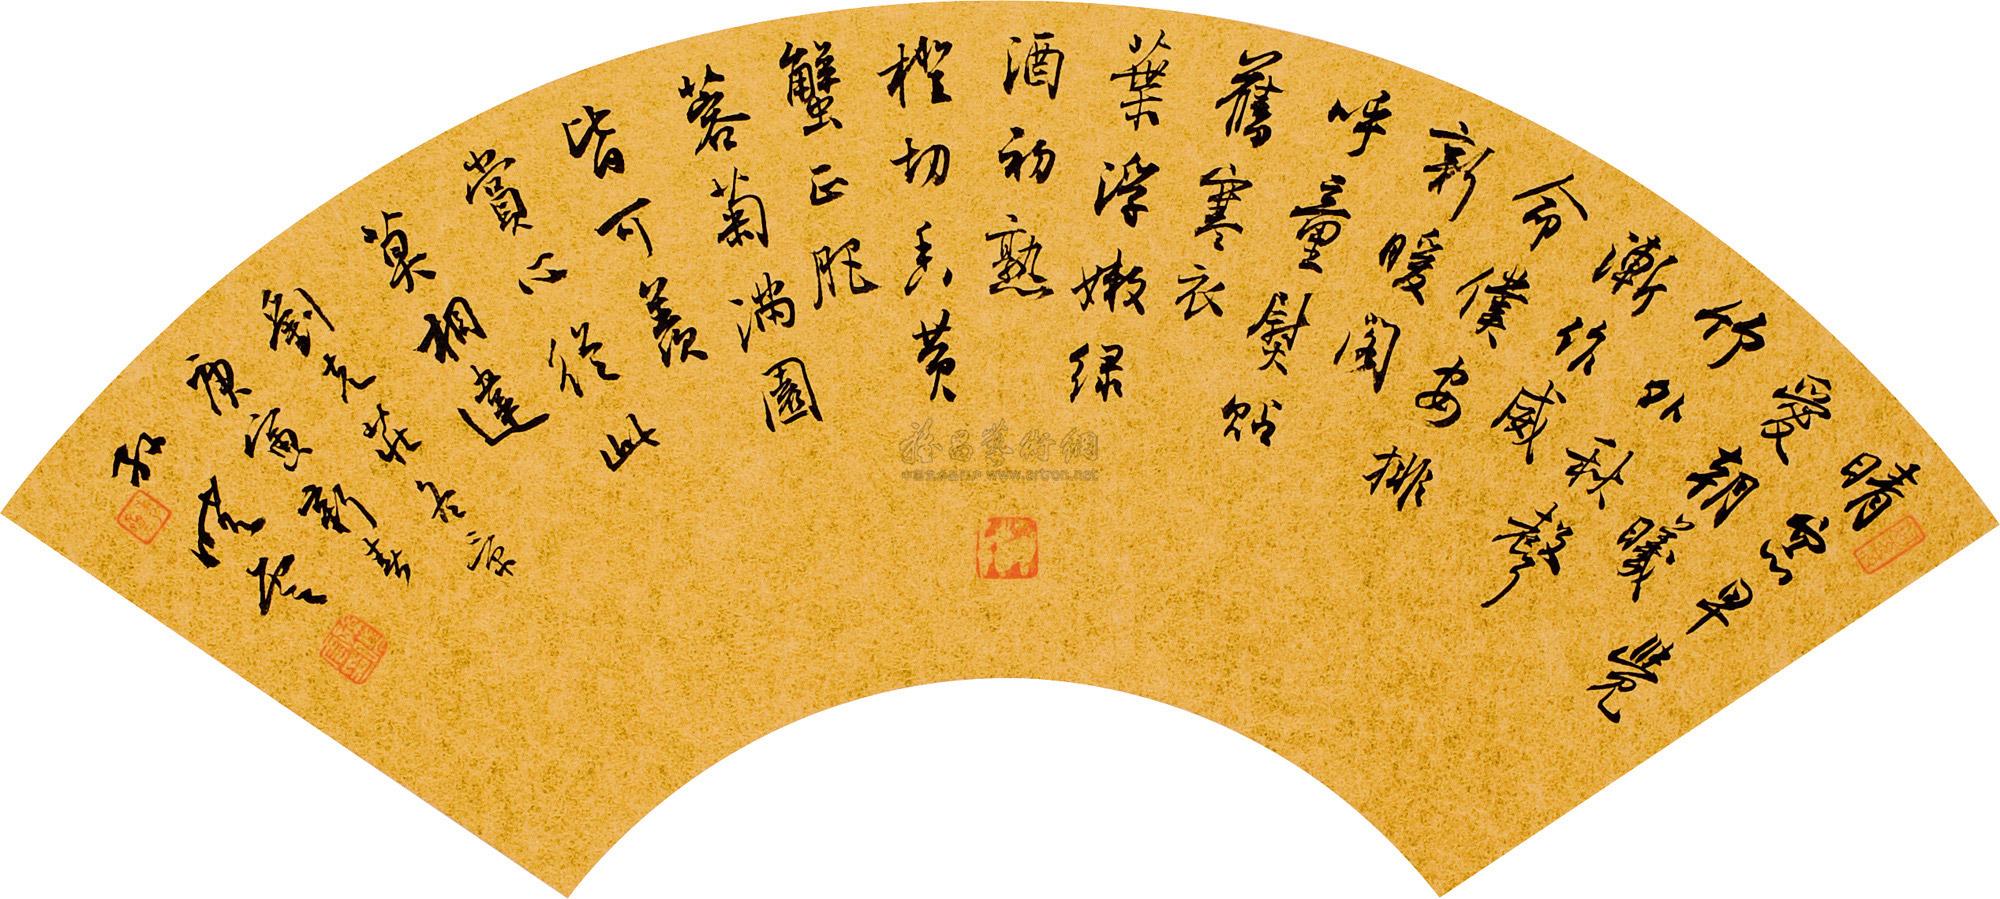 晴窗早覺
愛朝曦
竹外秋聲
漸作威
命僕安排
新暖閣
呼童熨貼
舊寒衣
葉浮嫩緑
酒初熟
橙切香黄
蟹正肥
蓉菊滿園
皆可羨
賞心從此
莫相違
劉克莊冬景
庚寅新春
孫曉雲
www.artron.net